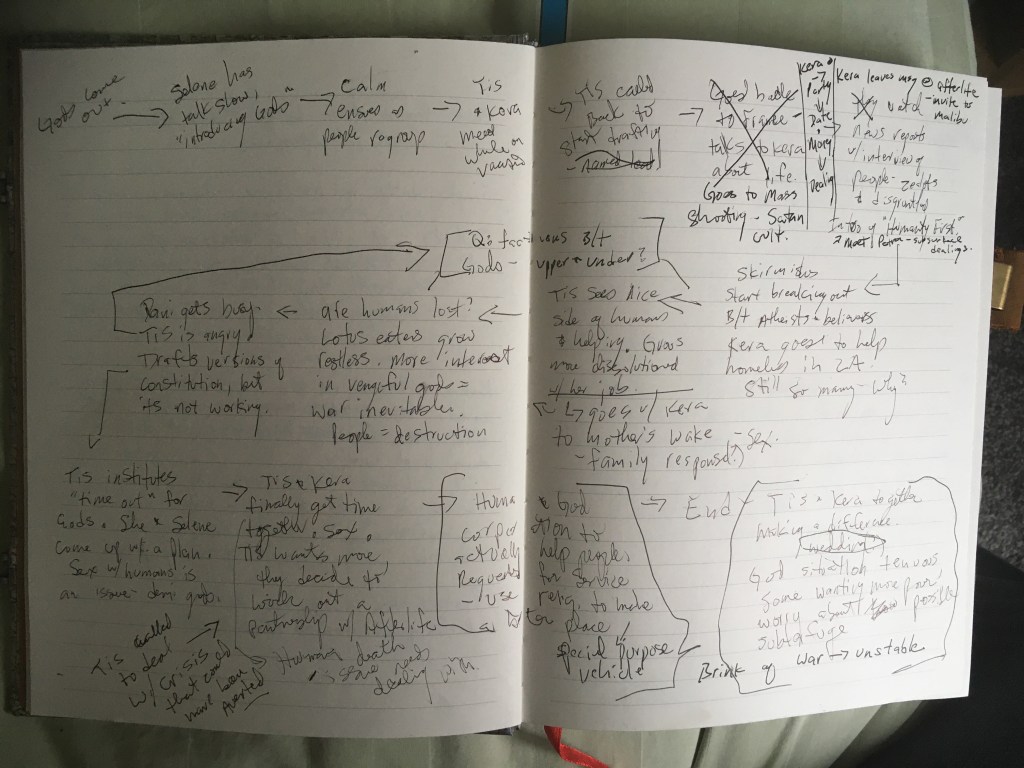 Gods come
out
Selene has
talk show,
"introducing Gods"
Calm
ensues as
people regroup
Tis
& Kera
meet
while on
Tis called
back to
start drafting
to
talks to Kera
about life.
Goes to Mass
Shooting - Satan
cult.
Kera
Party
Date
Mory
Dealing
Kera leaves msg
afterlife
- invite to
malibu
News reports
w/ interview of
people - zealots
& disgruntled
Intro of "Humanity First"
dealings.
Q: factions B/t
Gods - upper & under?
Skirmishes
Start breaking out
B/t Atheists & believers
Kera goes to help
homeless in LA.
Still so many - why?
Tis sees nice
side of humans
& helping. Grows
more
w/ her job.
goes w/ Kera
to mother's wake - sex.
- family response?
are humans lost?
Lotus eaters grow
restless. more interest
in vengeful gods =
war inevitable.
People = destruction
gets busy.
Tis is angry.
Drafts versions of
constitution, but
its not working.
Tis institutes
"time out" for
Gods. She & Selene
come up w/ a plan.
Sex w/ humans is
an issue - demi gods.
Tis called
to deal
w/ crisis
that could
have been
averted
Tis & Kera
finally get time
together. Sex.
Tis wants more,
they decide to
work out
a
partnership w/ Afterlife
Human death
issue needs
dealing with.
Human & God
help people,
for service
relig. to make
place
Special Purpose
Vehicle
actually
Requested
- use
End - Tis & Kera together
making a difference.
wedding
God situation tenuous
Some wanting more power,
worry about possible
subterfuge
Brink of war → unstable